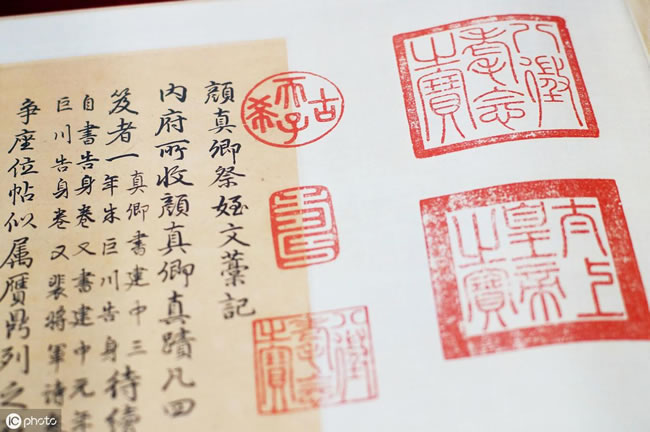 八徵耄念之寶
太上皇帝之寶
古希天子
壽
八徵耄念之寶
顏真卿祭姪文藁記
內府所收顏真卿真蹟凡四
笈者一
真卿書建中三
年朱巨川告身
待續
自書告身卷又書建中元年
巨川告身卷又裴將軍詩
爭座位帖似属贗鼎列之
IC photo